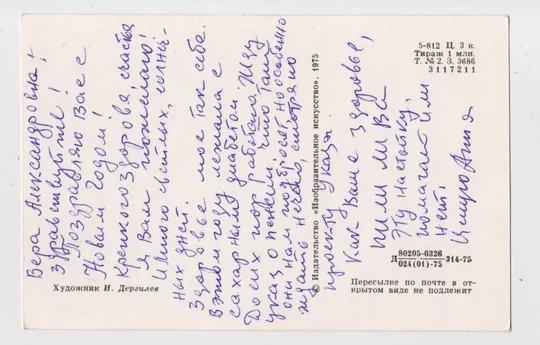 Вера Александровна!
Здравствуйте!
Поздравляю Вас с
Новым годом!
Крепкого здоровья счастья
я Вам пожелаю!
И много светлых, солнеч-
ных дней.
Здоровье мое так себе.
В этом году лежала с
сахарным диабетом
До сих пор работала. Жду
указ о пенсии, что там
они нам подбросят но особенно
ждать нечего, смотря по
проекту указа.
Как Ваше здоровье,
пили ли Вы
эту настойку,
помогает или
нет!
Целую Аня
5-812 Ц. 3 к.
Тираж 1 млн.
Т. № 2. З. 3686
3117211
© Издательство «Изобразительное искусство», 1975
80205-0326
024(01)-75 314-75
Художник И. Дергилев
Пересылке по почте в от-
крытом виде не подлежит